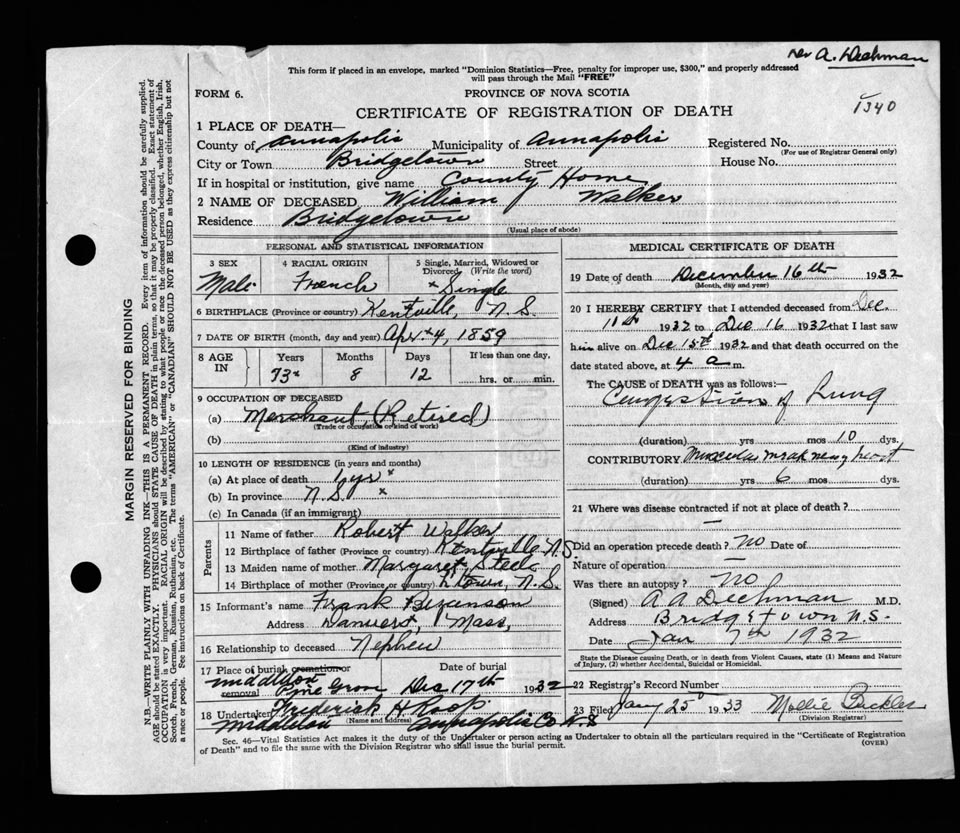 A. Dechman
This form if placed in an envelope, marked "Dominion Statistics—Free, penalty for improper use, $300," and properly addressed
will pass through the Mail "FREE"
FORM 6.
PROVINCE OF NOVA SCOTIA
1340
CERTIFICATE OF REGISTRATION OF DEATH
1 PLACE OF DEATH—
County of Annapolis Municipality of Annapolis Registered No.
(For use of Registrar General only)
City or Town Bridgetown Street House No.
If in hospital or institution, give name County Home
2 NAME OF DECEASED William Walker
Residence Bridgetown
(Usual place of abode)
PERSONAL AND STATISTICAL INFORMATION
3 SEX 4 RACIAL ORIGIN 5 Single, Married, Widowed or
Divorced (Write the word)
Male French x Single
6 BIRTHPLACE (Province or country) Kentville, N.S.
7 DATE OF BIRTH (month, day and year) Apr. x 4, 1859
8 AGE IN Years Months Days If less than one day,
73x 8 12 hrs. or min.
9 OCCUPATION OF DECEASED
(a) Merchant, (Retired)
(Trade or occupation or kind of work)
(b)
(Kind of industry)
10 LENGTH OF RESIDENCE (in years and months)
(a) At place of death yrs x
(b) In province N.S. x
(c) In Canada (if an immigrant)
Parents
11 Name of father Robert Walker
12 Birthplace of father (Province or country) Kentville N.S.
13 Maiden name of mother Margaret Steele
14 Birthplace of mother (Province or country) N.S.
15 Informant's name Frank
Address Danvers, Mass,
16 Relationship to deceased Nephew
17 Place of burial cremation or
removal Middleton Pine Grove
Date of burial
Dec 17th 1932
18 Undertaker Frederick H Roop
(Name and address)
Middleton Annapolis Co N.S
MEDICAL CERTIFICATE OF DEATH
19 Date of death December 16th 1932
(Month, day and year)
20 I HEREBY CERTIFY that I attended deceased from Dec.
11th 1932 to Dec 16 1932 that I last saw
him alive on Dec 15th 1932 and that death occurred on the
date stated above, at 4 a m.
The CAUSE of DEATH was as follows:
Congestion of Lung
(duration) yrs mos 10 dys.
CONTRIBUTORY Muscular weakness heart
(duration) yrs 6 mos dys.
21 Where was disease contracted if not at place of death?
—
Did an operation precede death? No Date of
Nature of operation —
Was there an autopsy? No
(Signed) A A Dechman M.D.
Address Bridgetown N.S.
Date Jan 7th 1932
State the Disease causing Death, or in death from Violent Causes, state (1) Means and Nature
of Injury, (2) whether Accidental, Suicidal or Homicidal.
22 Registrar's Record Number
23 Filed Jany 25th 1933 Mollie Beckler
(Division Registrar)
Sec. 46—Vital Statistics Act makes it the duty of the Undertaker or person acting as Undertaker to obtain all the particulars required in the "Certificate of Registration
of Death" and to file the same with the Division Registrar who shall issue the burial permit.
(OVER)
MARGIN RESERVED FOR BINDING
N.B.—WRITE PLAINLY WITH UNFADING INK—THIS IS A PERMANENT RECORD. Every item of information should be carefully supplied.
AGE should be stated EXACTLY. PHYSICIANS should STATE CAUSE OF DEATH in plain terms, so that it may be properly classified. Exact statement of
OCCUPATION is very important. RACIAL ORIGIN will be described by stating to what people or race the deceased person belonged, whether English, Irish,
Scotch, French, German, Russian, Ruthenian, etc. The terms "AMERICAN" or "CANADIAN" SHOULD NOT BE USED as they express citizenship but not
a race or people. See instructions on back of Certificate.